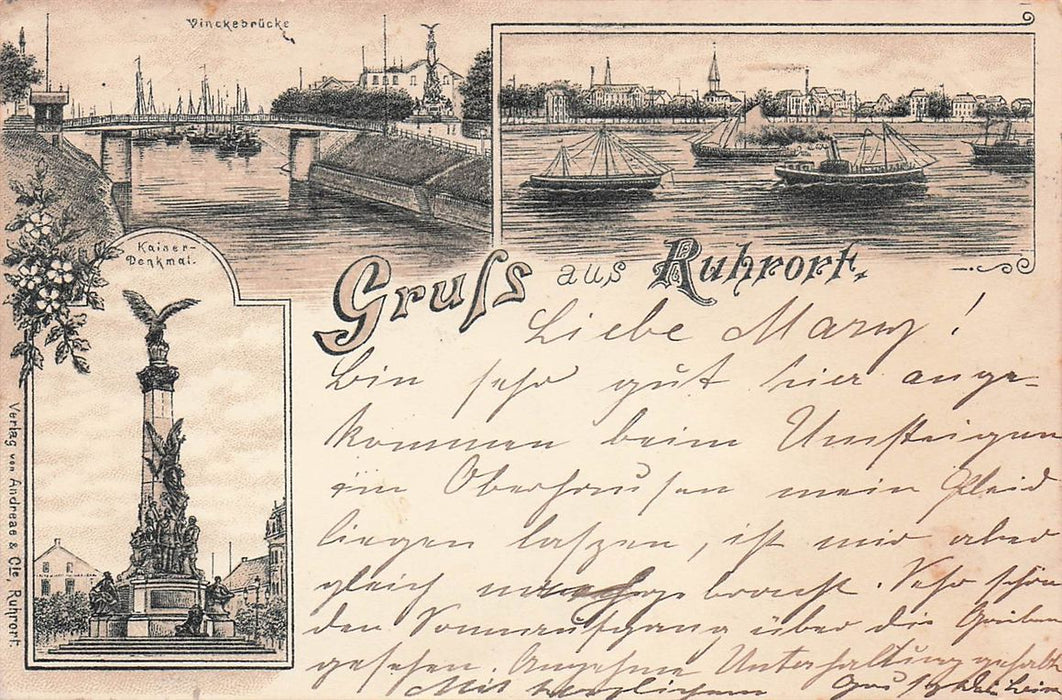 Vinckebrücke
Kaiser-
Denkmal.
Gruss aus Ruhrort.
Liebe Mary!
bin sehr gut hier ange-
kommen beim Umsteigen
in Oberhausen mein Kleid
liegen lassen, ist mir aber
gleich nachgebracht. Sehr schön
den Sonnaufgang über die
gesehen. Angenehme Unterhaltung gehabt
Mit herzlichem
Verlag von Andreae & Cie Ruhrort.